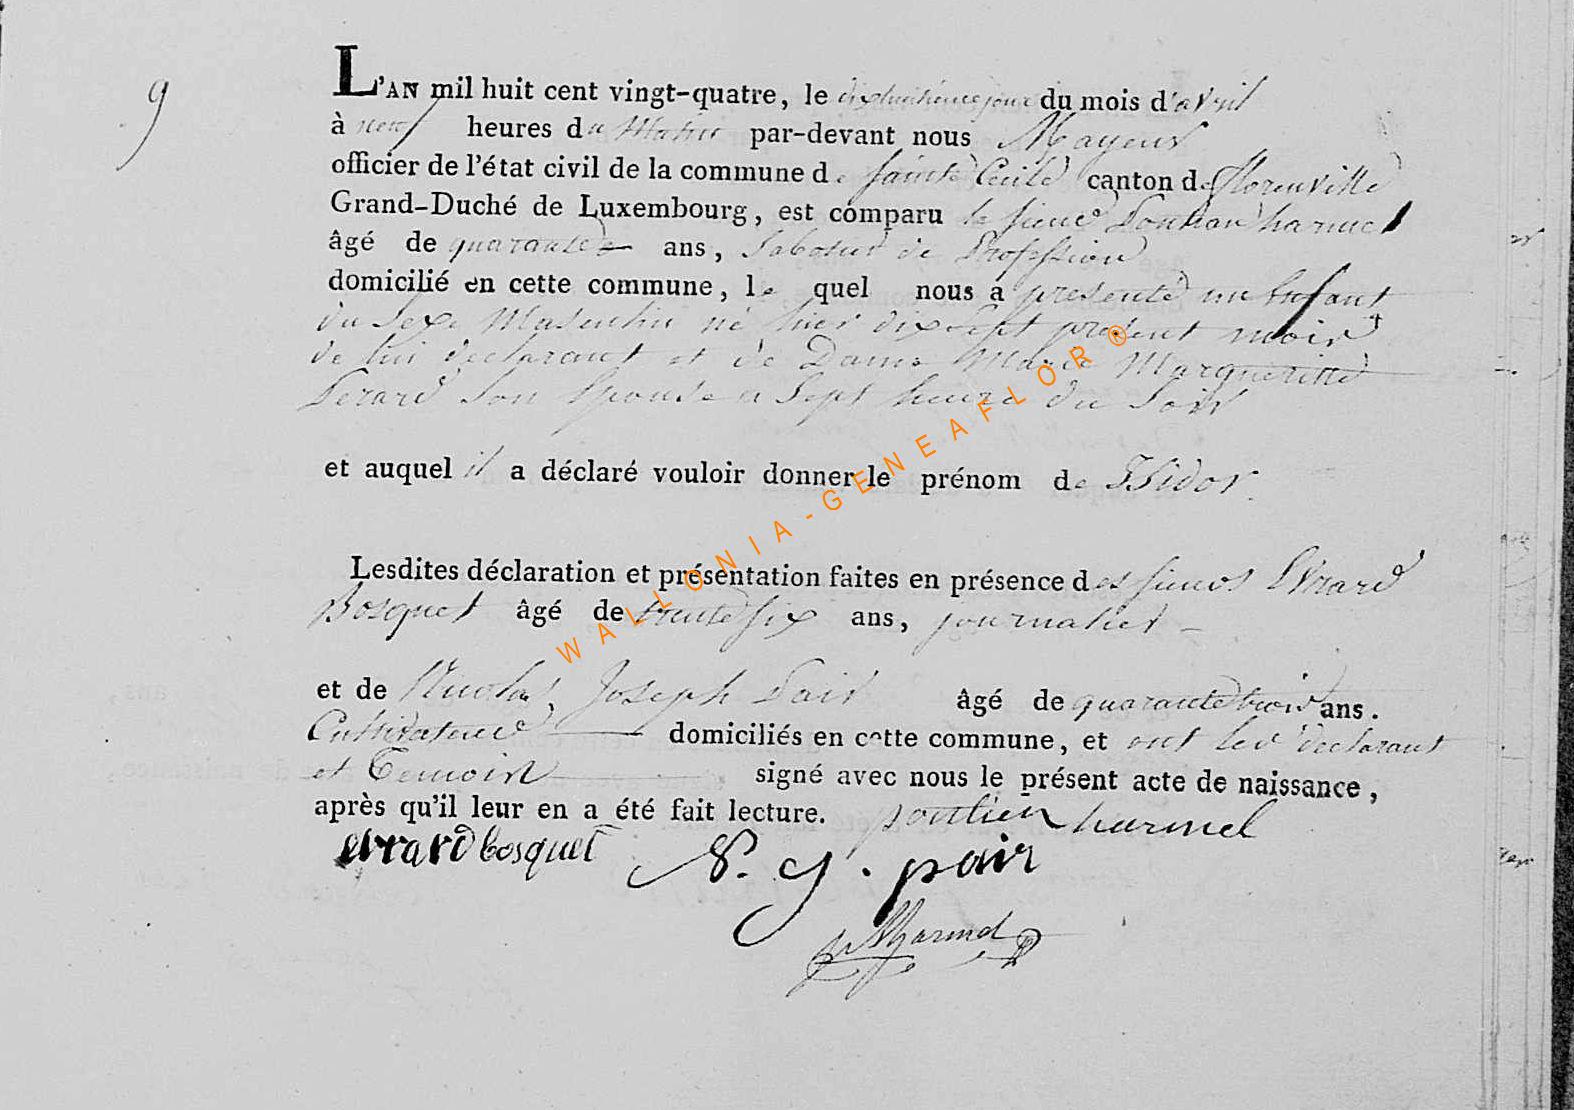 9
L'AN mil huit cent vingt-quatre, le dixhuitieme jour du mois d'avril
à neuf heures du Matin par-devant nous Mayeur
officier de l'état civil de la commune de sainte Cecile canton de florenville
Grand-Duché de Luxembourg, est comparu le sieur Pontian harmel
âgé de quarante ans, Saboteur de Profession
domicilié en cette commune, le quel nous a presenté un Enfant
du Sexe Masculin né hier dix sept present mois
de lui declarant et de Dame Marie Margueritte
Perard Son Epouse a Sept heure du Soir
et auquel il a déclaré vouloir donner le prénom de Isidor.
Lesdites déclaration et présentation faites en présence des sieurs Evrard
Bosquet âgé de trente six ans, journalier
et de Nicolas Joseph Pair âgé de quarante trois ans.
Cultivateur domiciliés en cette commune, et ont les declarant
et Temoin signé avec nous le présent acte de naissance,
après qu'il leur en a été fait lecture. pontien harmel
evrard bosquet N. J. pair
harmel
WALLONIA-GENEAFLOR®